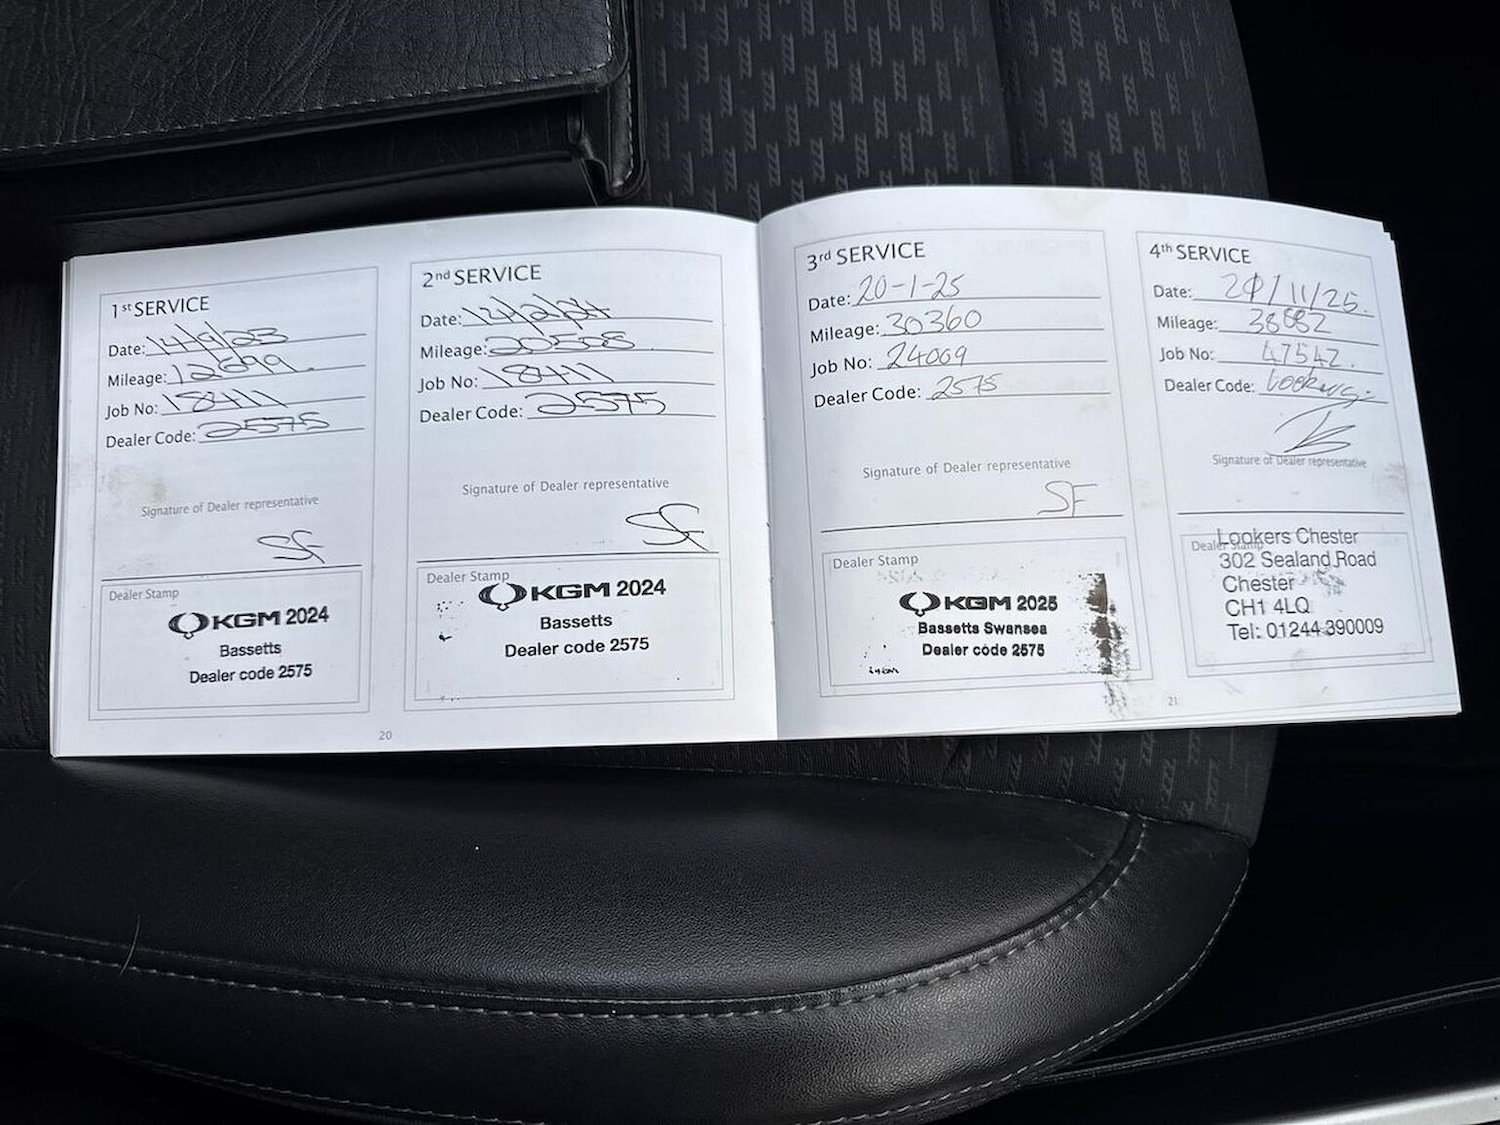 1st SERVICE
Date: 14/9/23
Mileage: 12699
Job No: 18411
Dealer Code: 2575
Signature of Dealer representative
SF
Dealer Stamp
KGM 2024
Bassetts
Dealer code 2575
2nd SERVICE
Date: 14/2/24
Mileage: 20508
Job No: 18411
Dealer Code: 2575
Signature of Dealer representative
SF
Dealer Stamp
KGM 2024
Bassetts
Dealer code 2575
20
3rd SERVICE
Date: 20-1-25
Mileage: 30360
Job No: 24009
Dealer Code: 2575
Signature of Dealer representative
SF
Dealer Stamp
KGM 2025
Bassetts Swansea
Dealer code 2575
4th SERVICE
Date: /11/25
Mileage: 38882
Job No: 47542
Dealer Code: Lookers
Signature of Dealer representative
Dealer Stamp
Lookers Chester
302 Sealand Road
Chester
CH1 4LQ
Tel: 01244 390009
21